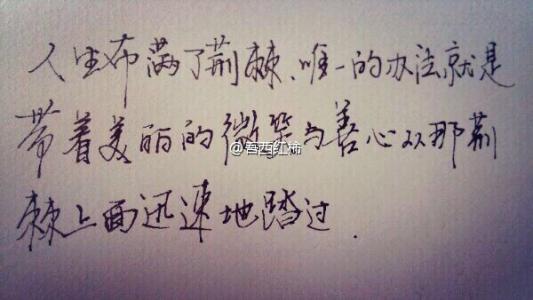 人生布满了荆棘、唯一的办法就是
带着美丽的微笑与善心从那荆
@吾西红柿
棘上面迅速地踏过.